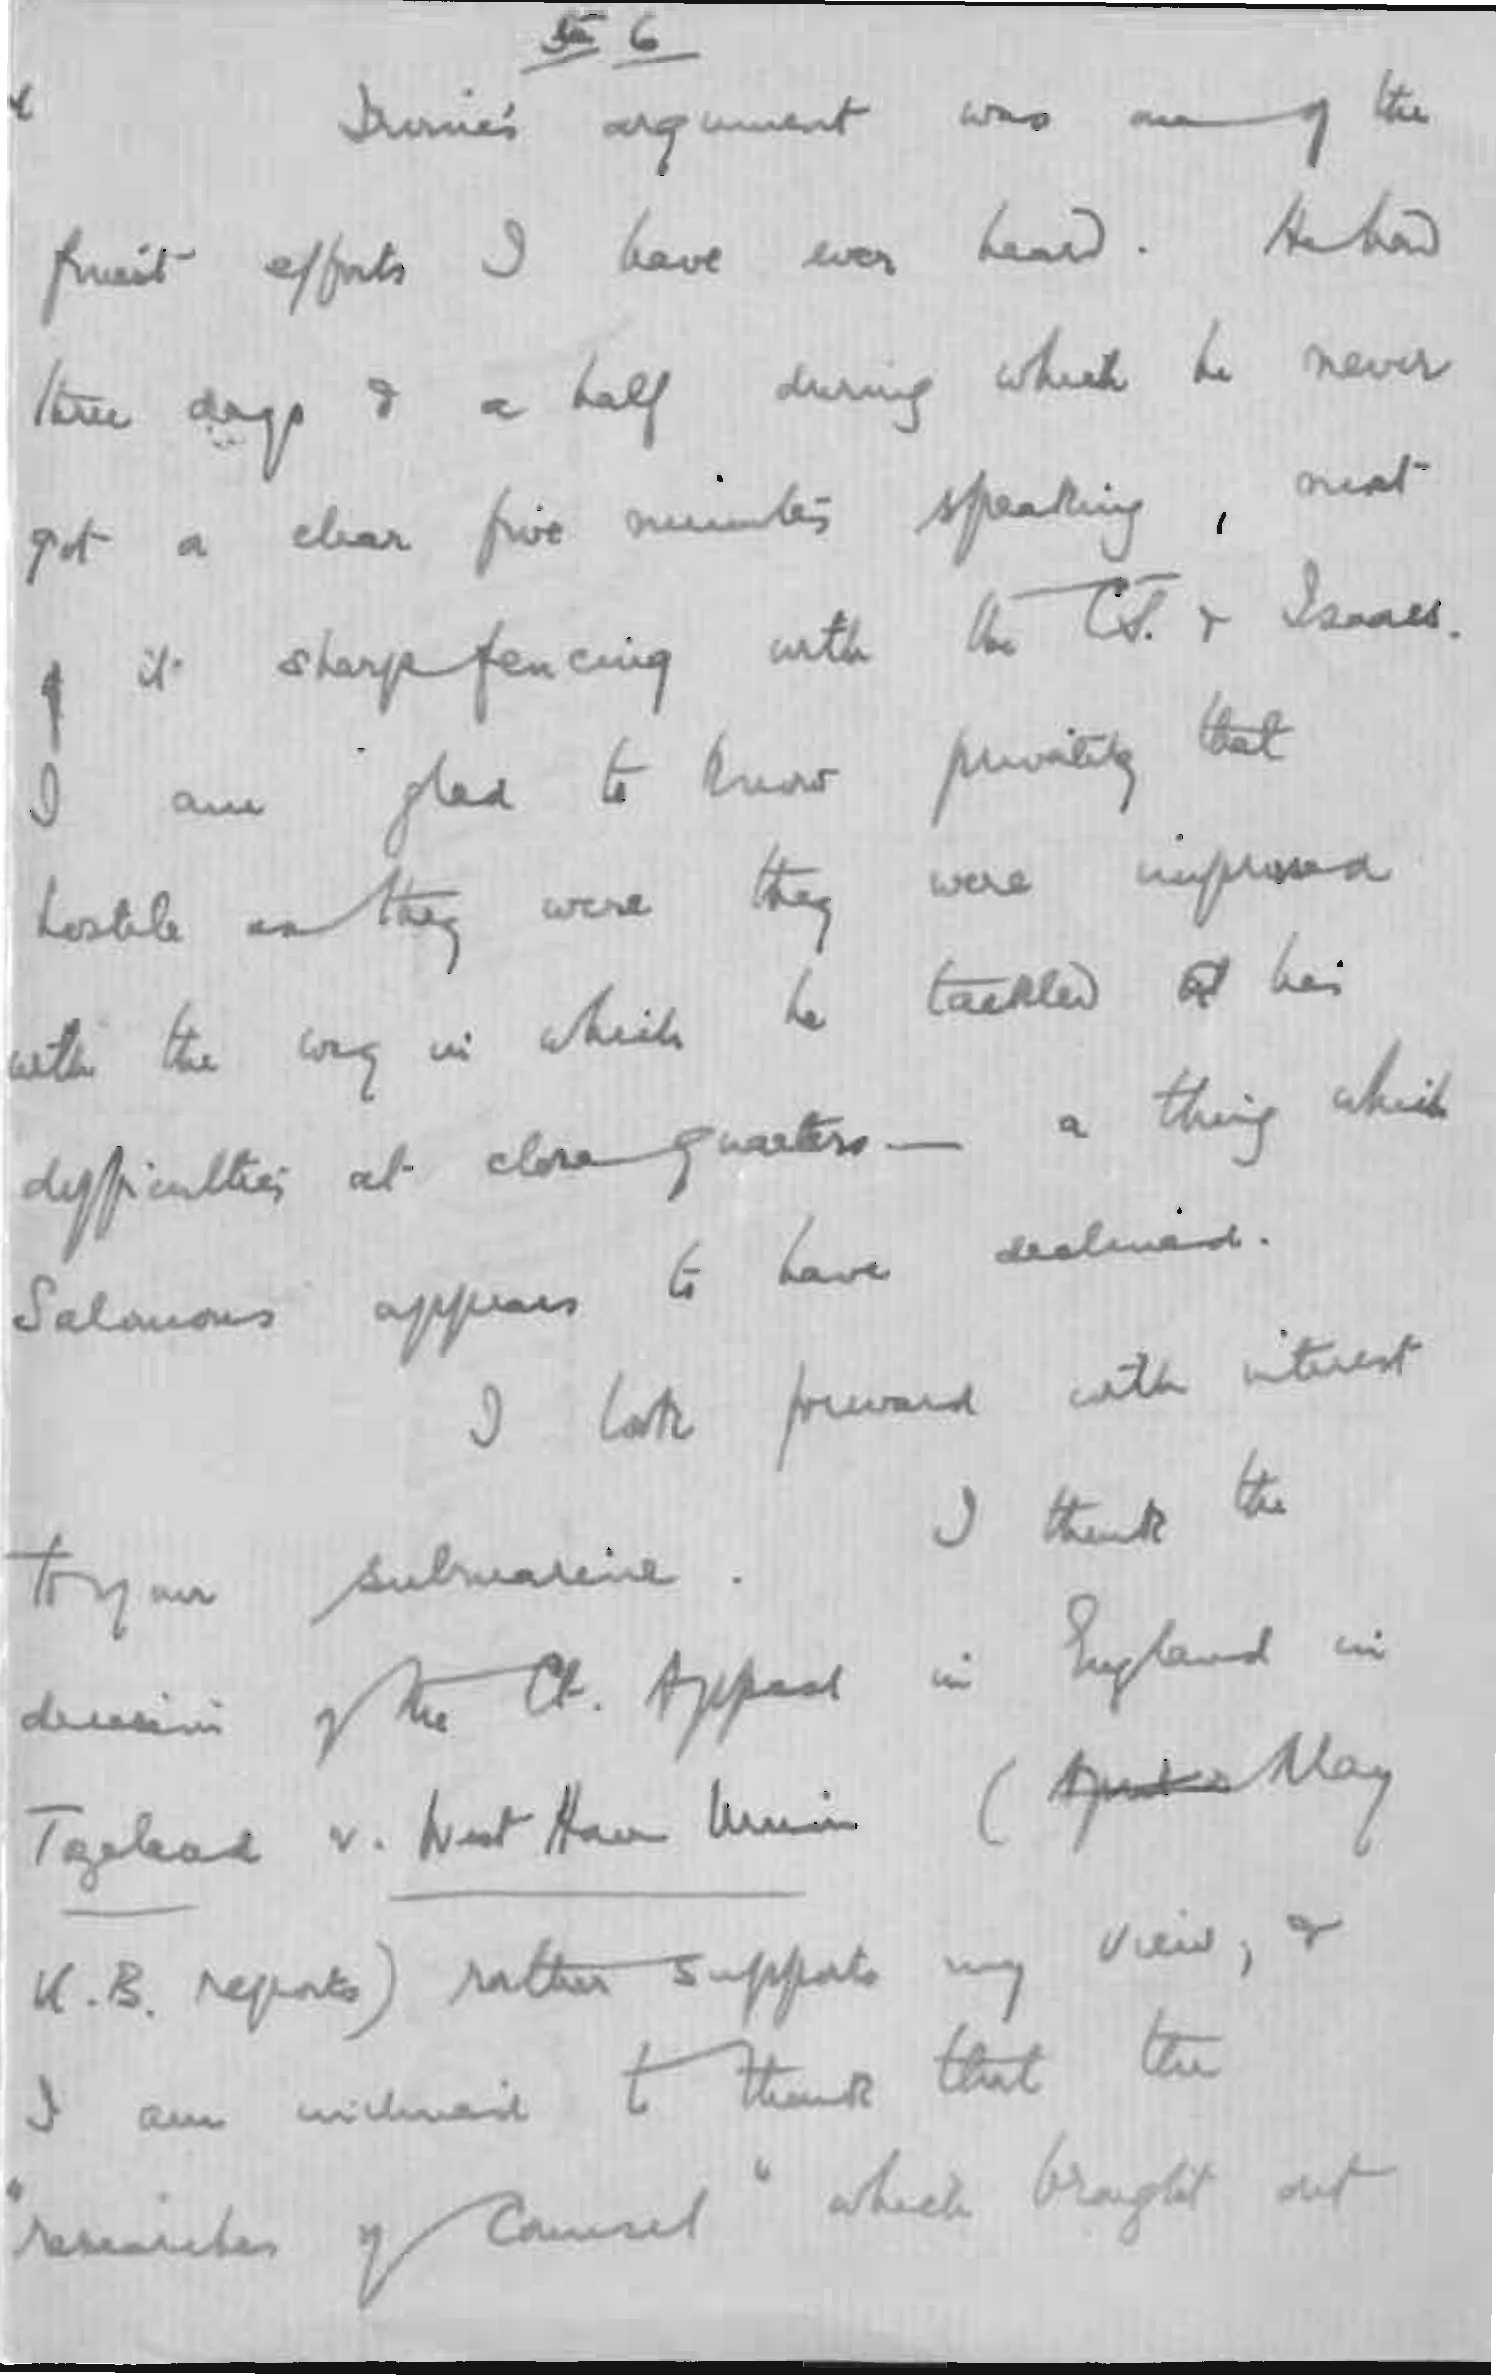 6
Irvine's argument was one of the
finest efforts I have ever heard. He had
three days & a half during which he never
got a clear five minutes speaking, most
of it sharp fencing with the CJ. & Isaacs.
I am glad to know privately that
hostile as they were they were impressed
with the way in which he tackled his
difficulties at close quarters — a thing which
Salomons appears to have declined.
I look forward with interest
to your submarine. I think the
decision of the Ct. Appeal in England in
v. West Ham Union (April May
K.B. reports) rather supports my view, &
I am inclined to think that the
"researches of Counsel" which brought out